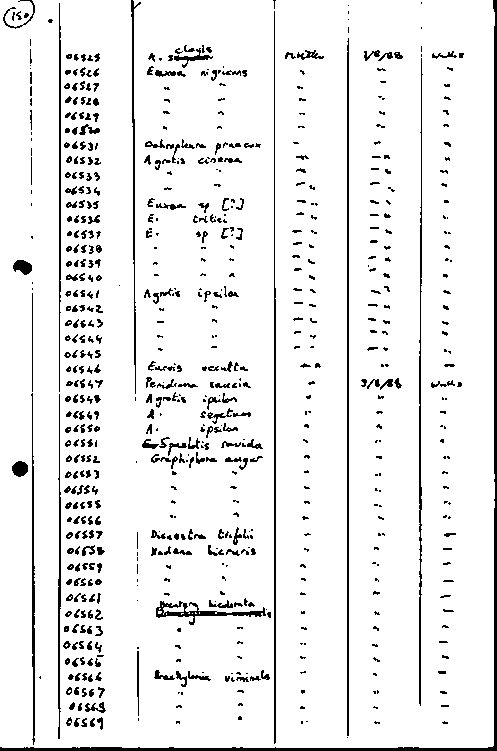 150
06525 A. clavis 1/8/88
06526 Euxoa nigricans " " "
06527 " " " " "
06528 " " " " "
06529 " " " " "
06530 " " " " "
06531 Ochropleura praecox " " "
06532 Agrotis cinerea " " "
06533 " " " " "
06534 " " "
06535 Euxoa sp [?] " " "
06536 E. tritici " " "
06537 E. sp [?] " " "
06538 " " " " " "
06539 " " " " " "
06540 " " " " " "
06541 Agrotis ipsilon " " "
06542 " " " " "
06543 " " " " "
06544 " " " " "
06545 " " " " "
06546 Eurois occulta " " "
06547 Peridroma saucia " 3/8/88
06548 Agrotis ipsilon " " "
06549 A. segetum " " "
06550 A. ipsilon " " "
06551 Spaelotis ravida " " "
06552 Graphiphora augur " " "
06553 " " " " "
06554 " " " " "
06555 " " " " "
06556 " " " " "
06557 Discestra trifolii " " "
06558 Hadena bicruris " " "
06559 " " " " "
06560 " " " " "
06561 " " " " "
06562 " " "
06563 " " " " "
06564 " " " " "
06565 " " " " "
06566 Brachylomia viminalis " " "
06567 " " " " "
06568 " " " " "
06569 " " " " "